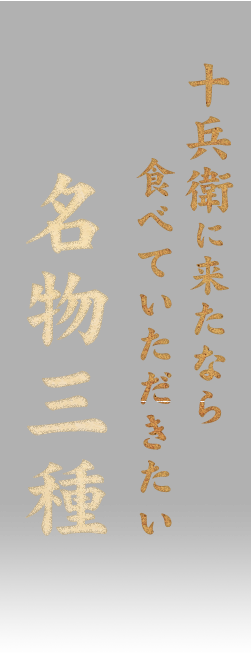 十兵衛に来たなら
食べていただきたい
名物三種